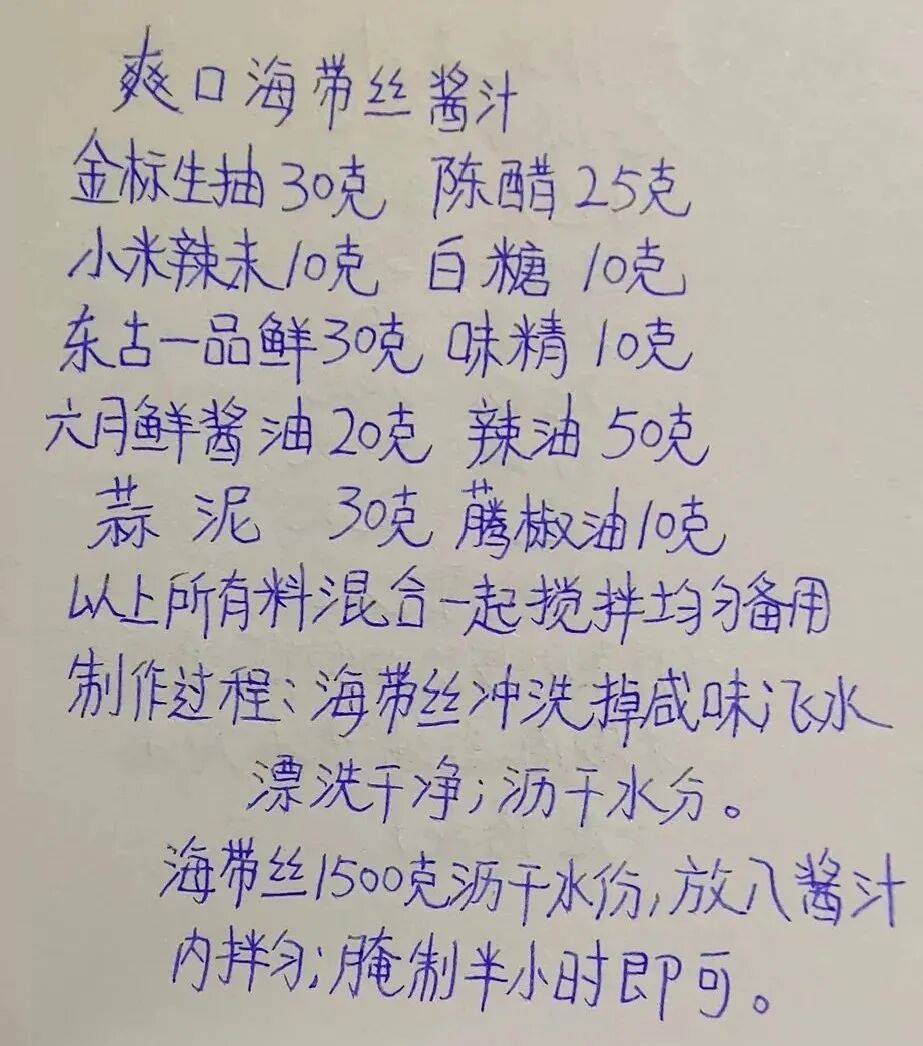 爽口海带丝酱汁
金标生抽30克 陈醋25克
小米辣末10克 白糖10克
东古一品鲜30克 味精10克
六月鲜酱油20克 辣油50克
蒜泥 30克 藤椒油10克
以上所有料混合一起搅拌均匀备用
制作过程:海带丝冲洗掉咸味汆水
漂洗干净;沥干水分。
海带丝1500克沥干水份,放入酱汁
内拌匀;腌制半小时即可。